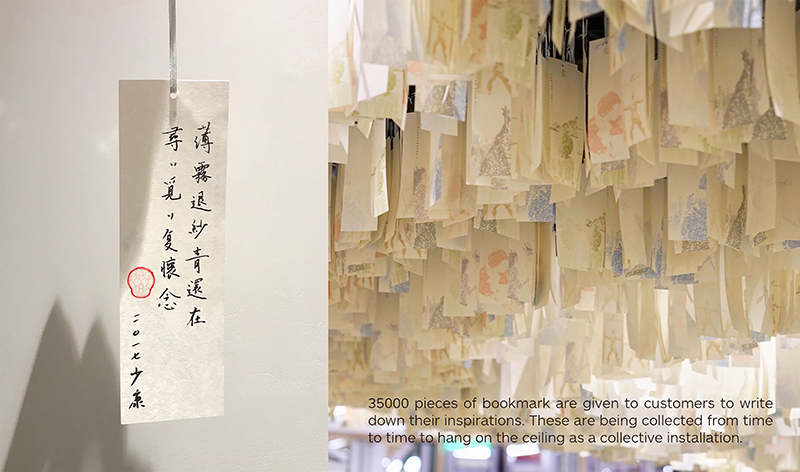 薄霧退紗青還在
尋〃覓〃复懷念
二〇一七少康
35000 pieces of bookmark are given to customers to write
down their inspirations. These are being collected from time
to time to hang on the ceiling as a collective installation.